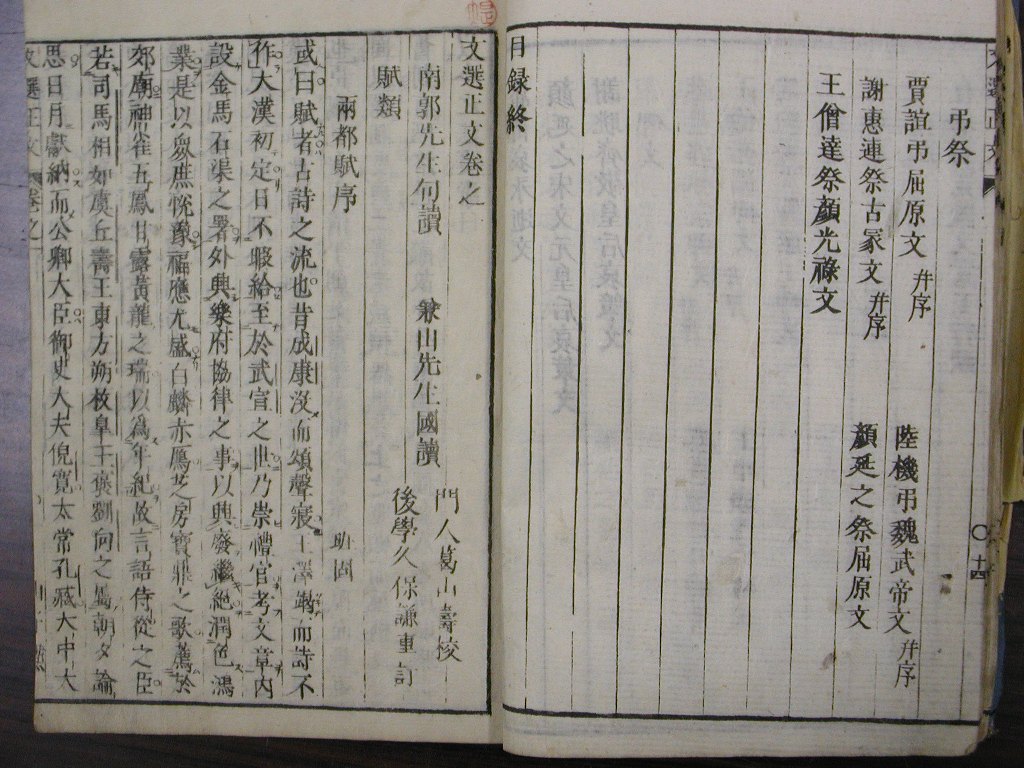 弔祭
賈誼弔屈原文 并序
陸機弔魏武帝文 并序
謝惠連祭古冢文 并序
顏延之祭屈原文
王僧達祭顏光祿文
目録終
十四
文選正文卷之
南郭先生句讀
門人葛山壽校
先生國讀
後學久保謙重訂
賦類
兩都賦序
班固
或曰賦者古詩之流也昔成康沒而頌聲寢王澤竭而詩不
作大漢初定日不暇給至於武宣之世乃崇禮官考文章内
設金馬石渠之署外興樂府協律之事以興廢繼絕潤色鴻
業是以衆庶悅豫福應尤盛白麟赤鴈芝房寶鼎之歌薦於
郊廟神雀五鳳甘露黃龍之瑞以爲年紀故言語侍從之臣
若司馬相如虞丘壽王東方朔枚皐王襃劉向之屬朝夕論
思日月獻納而公卿大臣御史大夫倪寬太常孔臧大中大
文選正文 卷之一